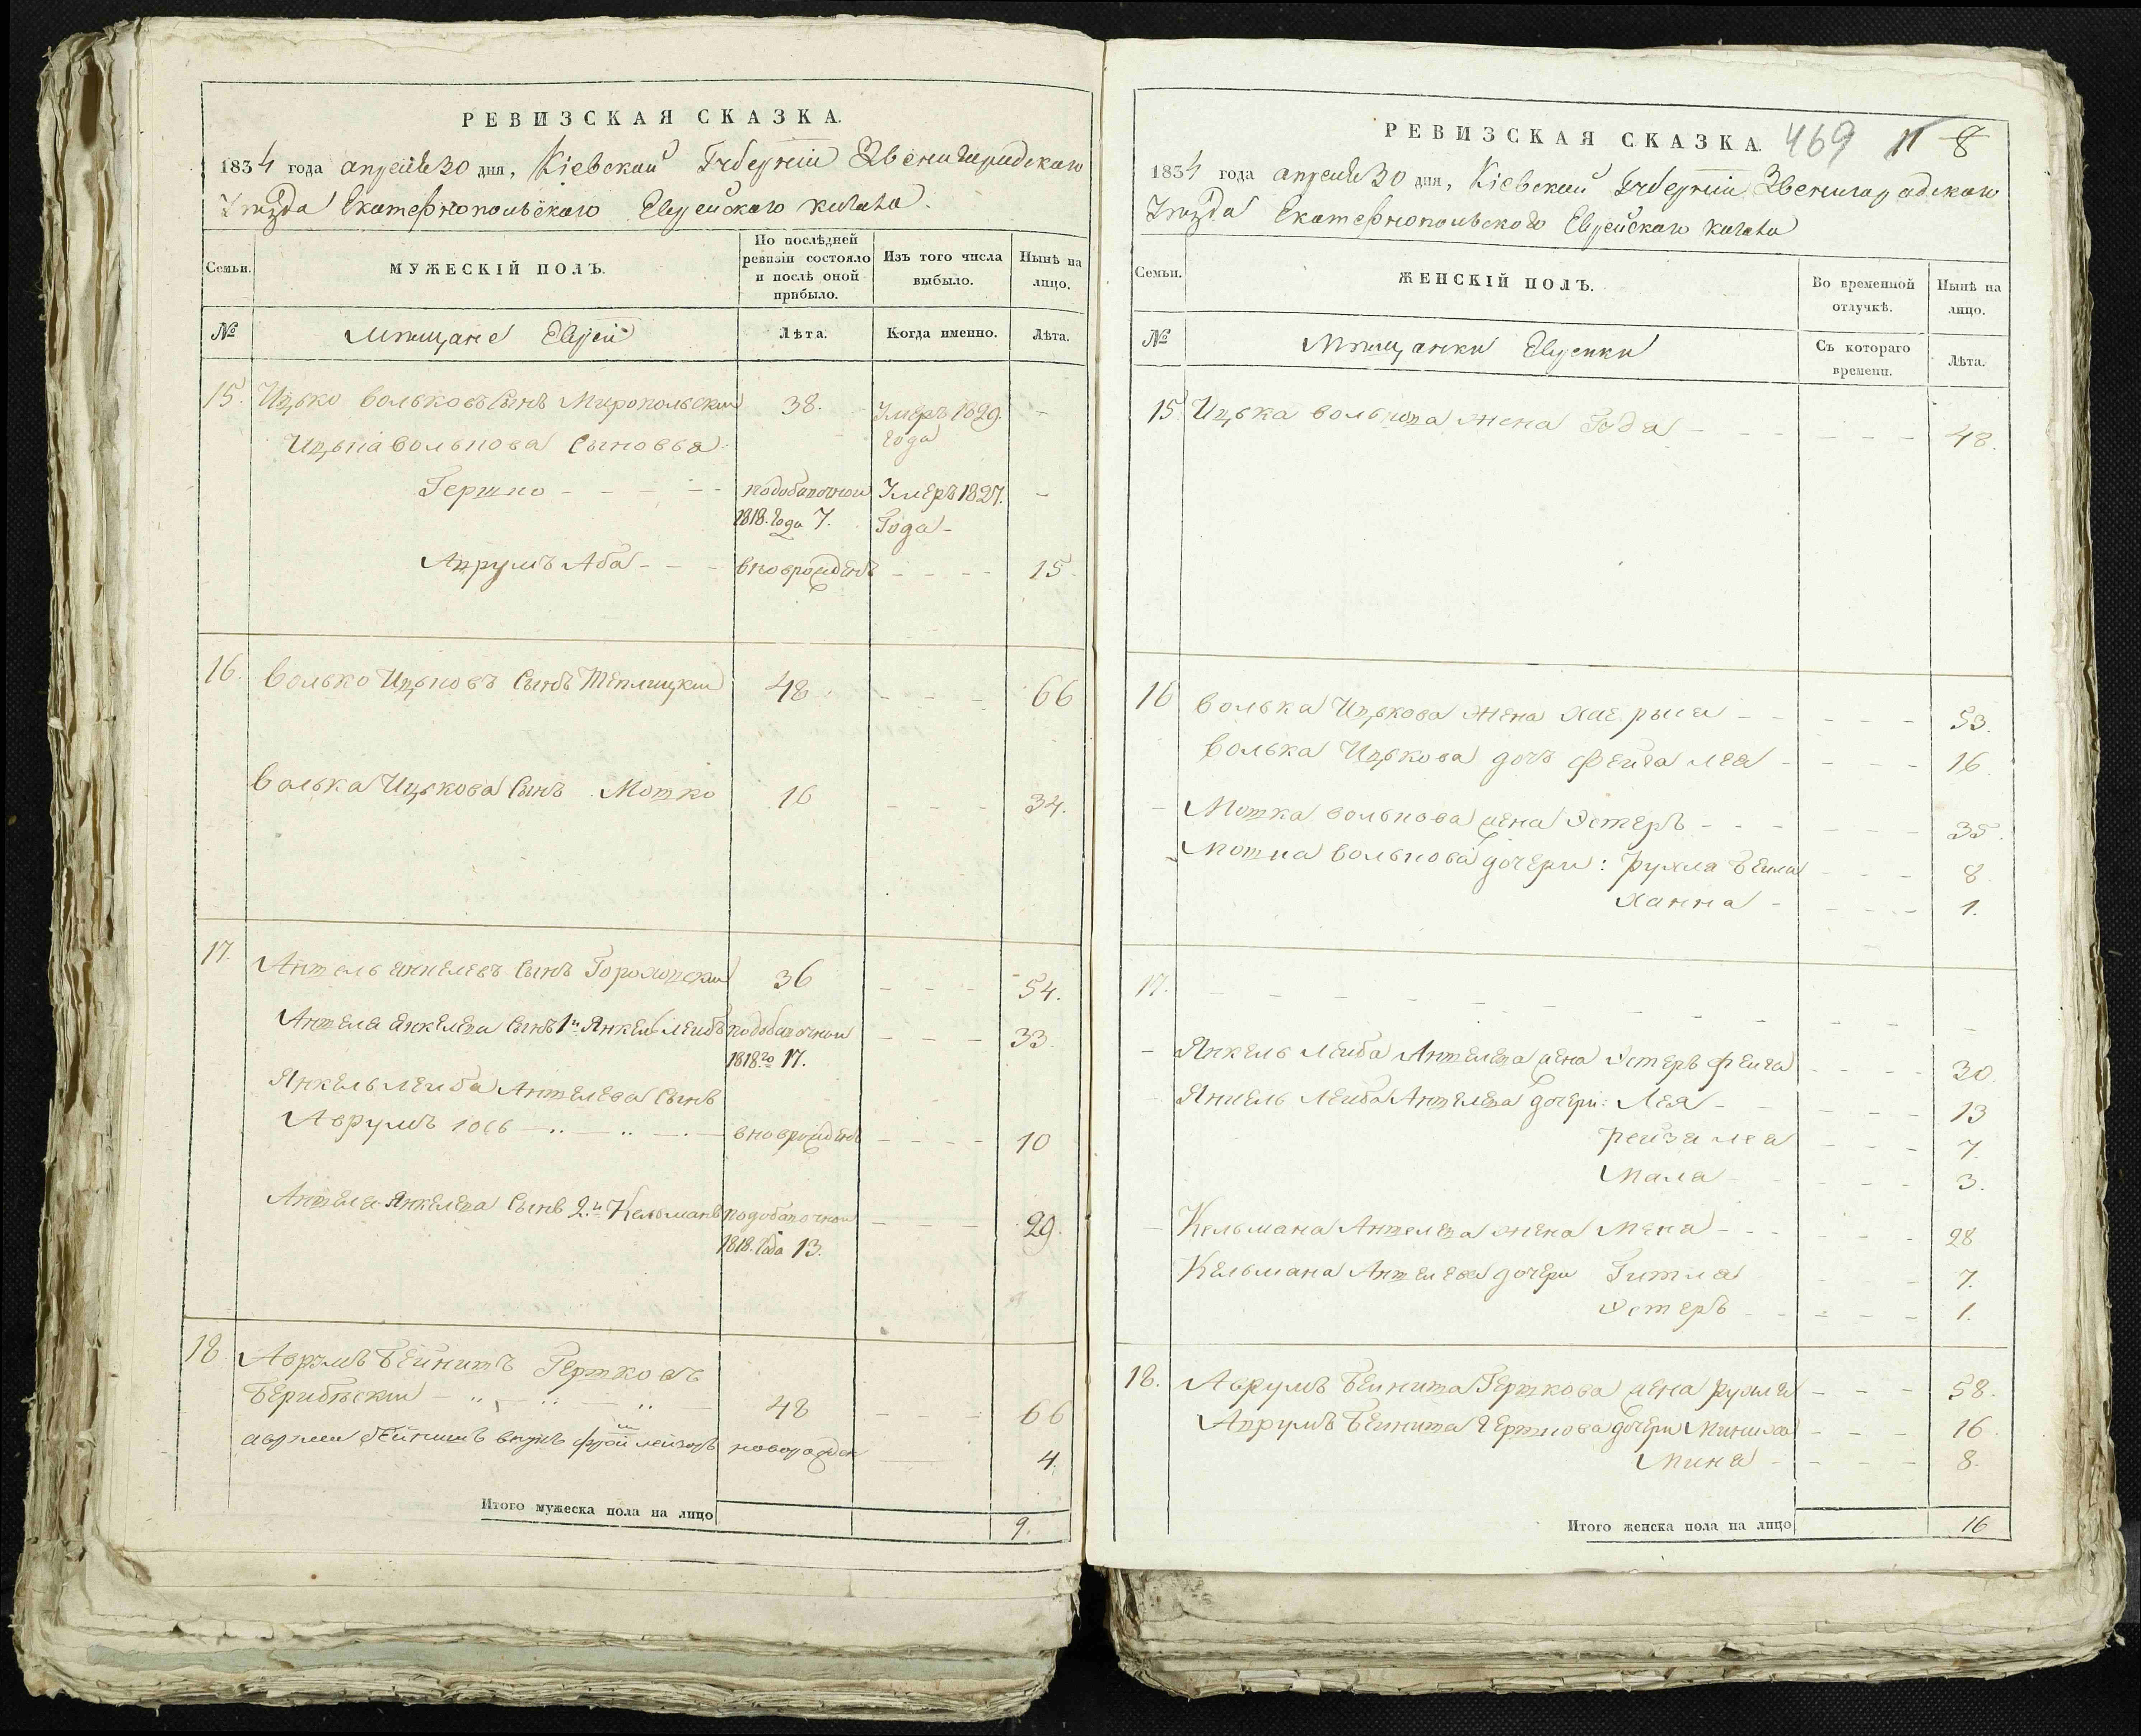 РЕВИЗСКАЯ СКАЗКА.
1834 года апреля 30 дня, Кіевской Губерніи Звенигородскаго
Уѣзда Екатеринопольскаго Еврейскаго кагала.
Семьи.
МУЖЕСКІЙ ПОЛЪ.
По послѣдней ревизіи состояло и послѣ оной прибыло.
Изъ того числа выбыло.
Нынѣ на лицо.
№
Мѣщане Евреи
Лѣта.
Когда именно.
Лѣта.
15. Ицько Вольковъ Сынъ Миропольскии 38. Умеръ 1829. -
Года
Ицька Волькова Сыновья
Гершко - - - - - по добавочнои Умеръ 1827. -
1818. Года 7. Года -
Аврумъ Аба - - - вноврожденъ - - - - 15.
16. Волько Ицьковъ Сынъ Теплицкии 48 - - - 66
Волька Ицькова Сынъ Мотко 16 - - - 34.
17. Аншель Янкелевъ Сынъ Гороховскии 36 - - - 54.
Аншеля Янкелева Сынъ 1й Янкель Леибъ по добавочнои - - - 33.
1818го 17.
Янкель Леиба Аншелева Сынъ
Аврумъ Іось вноврожденъ - - - - 10
Аншеля Янкелева Сынъ 2й Кельманъ по добавочнои - - - 29.
1818. Года 13.
18. Аврумъ Беинишъ Гершковъ
48 - - - 66
внукъ 4.
Итого мужеска пола на лицо
9.
РЕВИЗСКАЯ СКАЗКА. 469 11 8
1834 года апреля 30 дня, Кіевской Губерніи Звенигородскаго
Уѣзда Екатеринопольскаго Еврейскаго кагала
Семьи.
ЖЕНСКІЙ ПОЛЪ.
Во временной отлучкѣ.
Нынѣ на лицо.
№
Мѣщанки Евреики
Съ котораго времени.
Лѣта.
15. Ицька Волькова жена Года - - - - - - - 48.
16 Волька Ицькова жена Хае Рыся - - - - - - 53.
Волька Ицькова дочь Феига Леа - - - - - 16
- Мошка Волькова жена Эстеръ - - - - - - 35.
- Мошка Волькова дочери: Рухля Беила - - - 8.
Ханна - - - - - 1.
17. - - - - - - - - - - - -
- Янкель Леиба Аншелева жена Эстеръ Феига - - - - 30.
Янкель Леиба Аншелева дочери: Лея - - - - - - 13
Реиза Леа - - - 7.
Мала - - - - 3.
- Кельмана Аншелева жена Мена - - - - - - 28
Кельмана Аншелева дочери Гитля - - - 7.
Эстеръ - - - - - 1.
18. Аврумъ Беиниша Гершкова жена Рухля - - - 58.
Аврумъ Беиниша Гершкова дочери - - - 16.
Мина - - - - - 8.
Итого женска пола на лицо
16